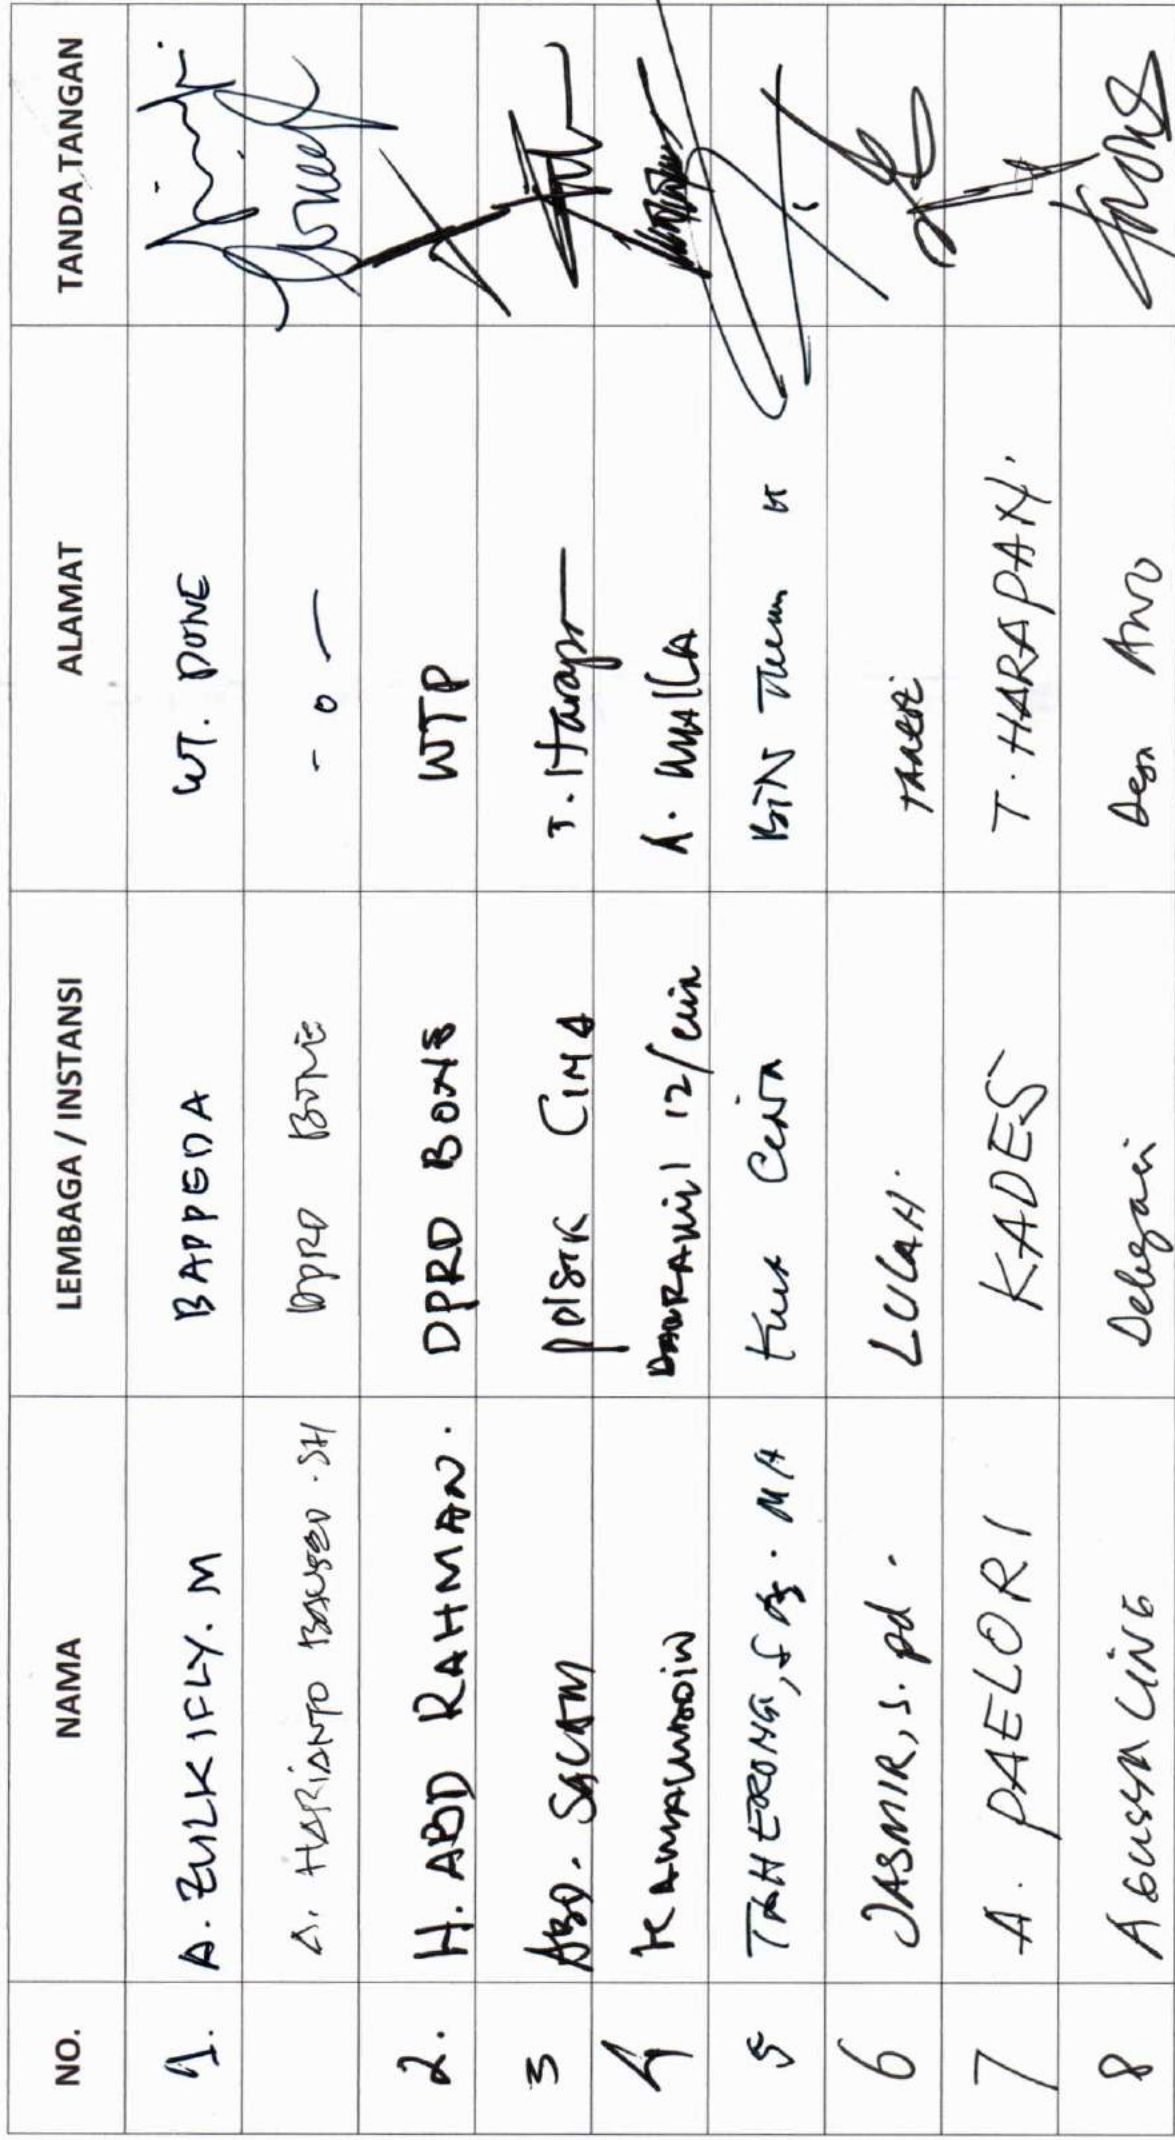 NO. NAMA LEMBAGA / INSTANSI ALAMAT TANDA TANGAN
1. A. ZULKIFLY. M BAPPEDA WT. BONE
A. HARIANTO BAUSED . SH DPRD BONE - 0 -
2. H. ABD RAHMAN . DPRD BONE WTP
3 ABD. SALAM POLSEK CINA T. Harap
4 KAMALUDDIN 12/Cina A.
5 TAHERONG, S Ag. MA Cina
6 JASMIR, S. pd. LURAH. TANETE
7 A. PAELORI KADES T. HARAPAN.
8 Desa Awo